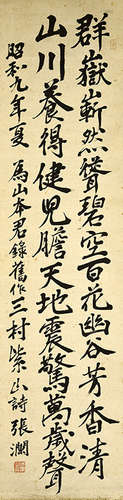 群嶽嶄然聳碧空百花幽谷芳香清
山川養得健児膽天地震驚萬歳聲
昭和九年夏 為山本君錄舊作三村柴山詩 張瀾